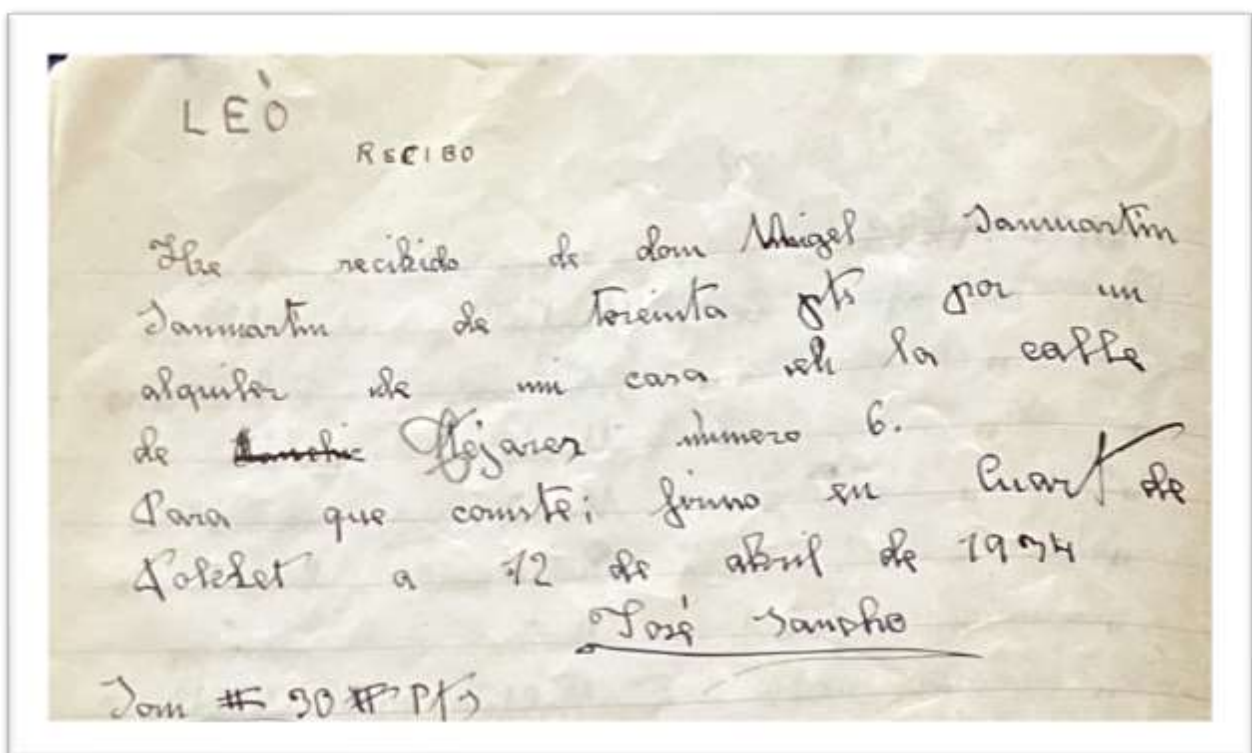 LEÒ
RECIBO
He recibido de dom Miigel Sanmartin
Sanmartin de tereinta pts por un
alquiler de mi casa en la calle
de Tejares numero 6.
Para que comste; firmo en Cuart de
Poblet a 12 de abril de 1934
José Sancho
Som # 30 # Pts